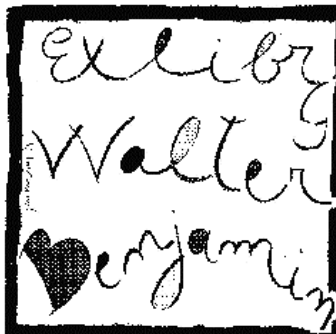 Exlibris
Walter
Benjamin